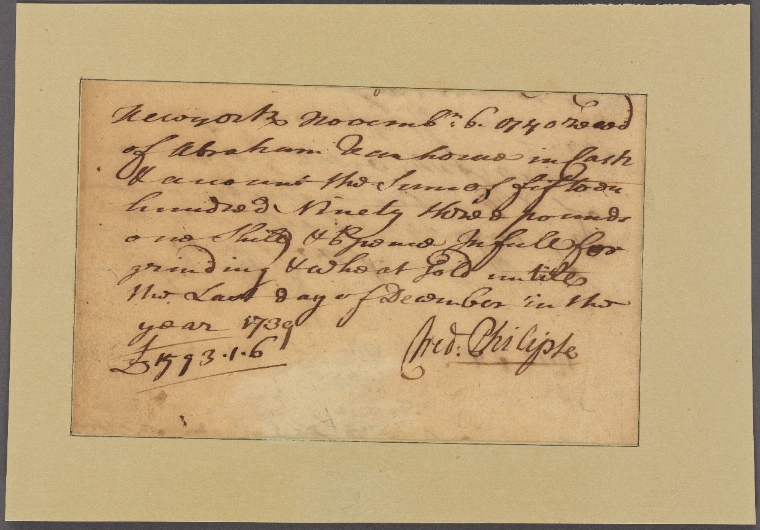 Newyork Novemb.r 6. 1740 Receed
of Abraham Van horne in Cash
& account the Sum of fifteen
hundred Ninety three pounds
one Shill & 6 pence In full for
grinding & wheat Sold untill
the Last day of December in the
year 1739
£1593.1.6
Fred: Philipse